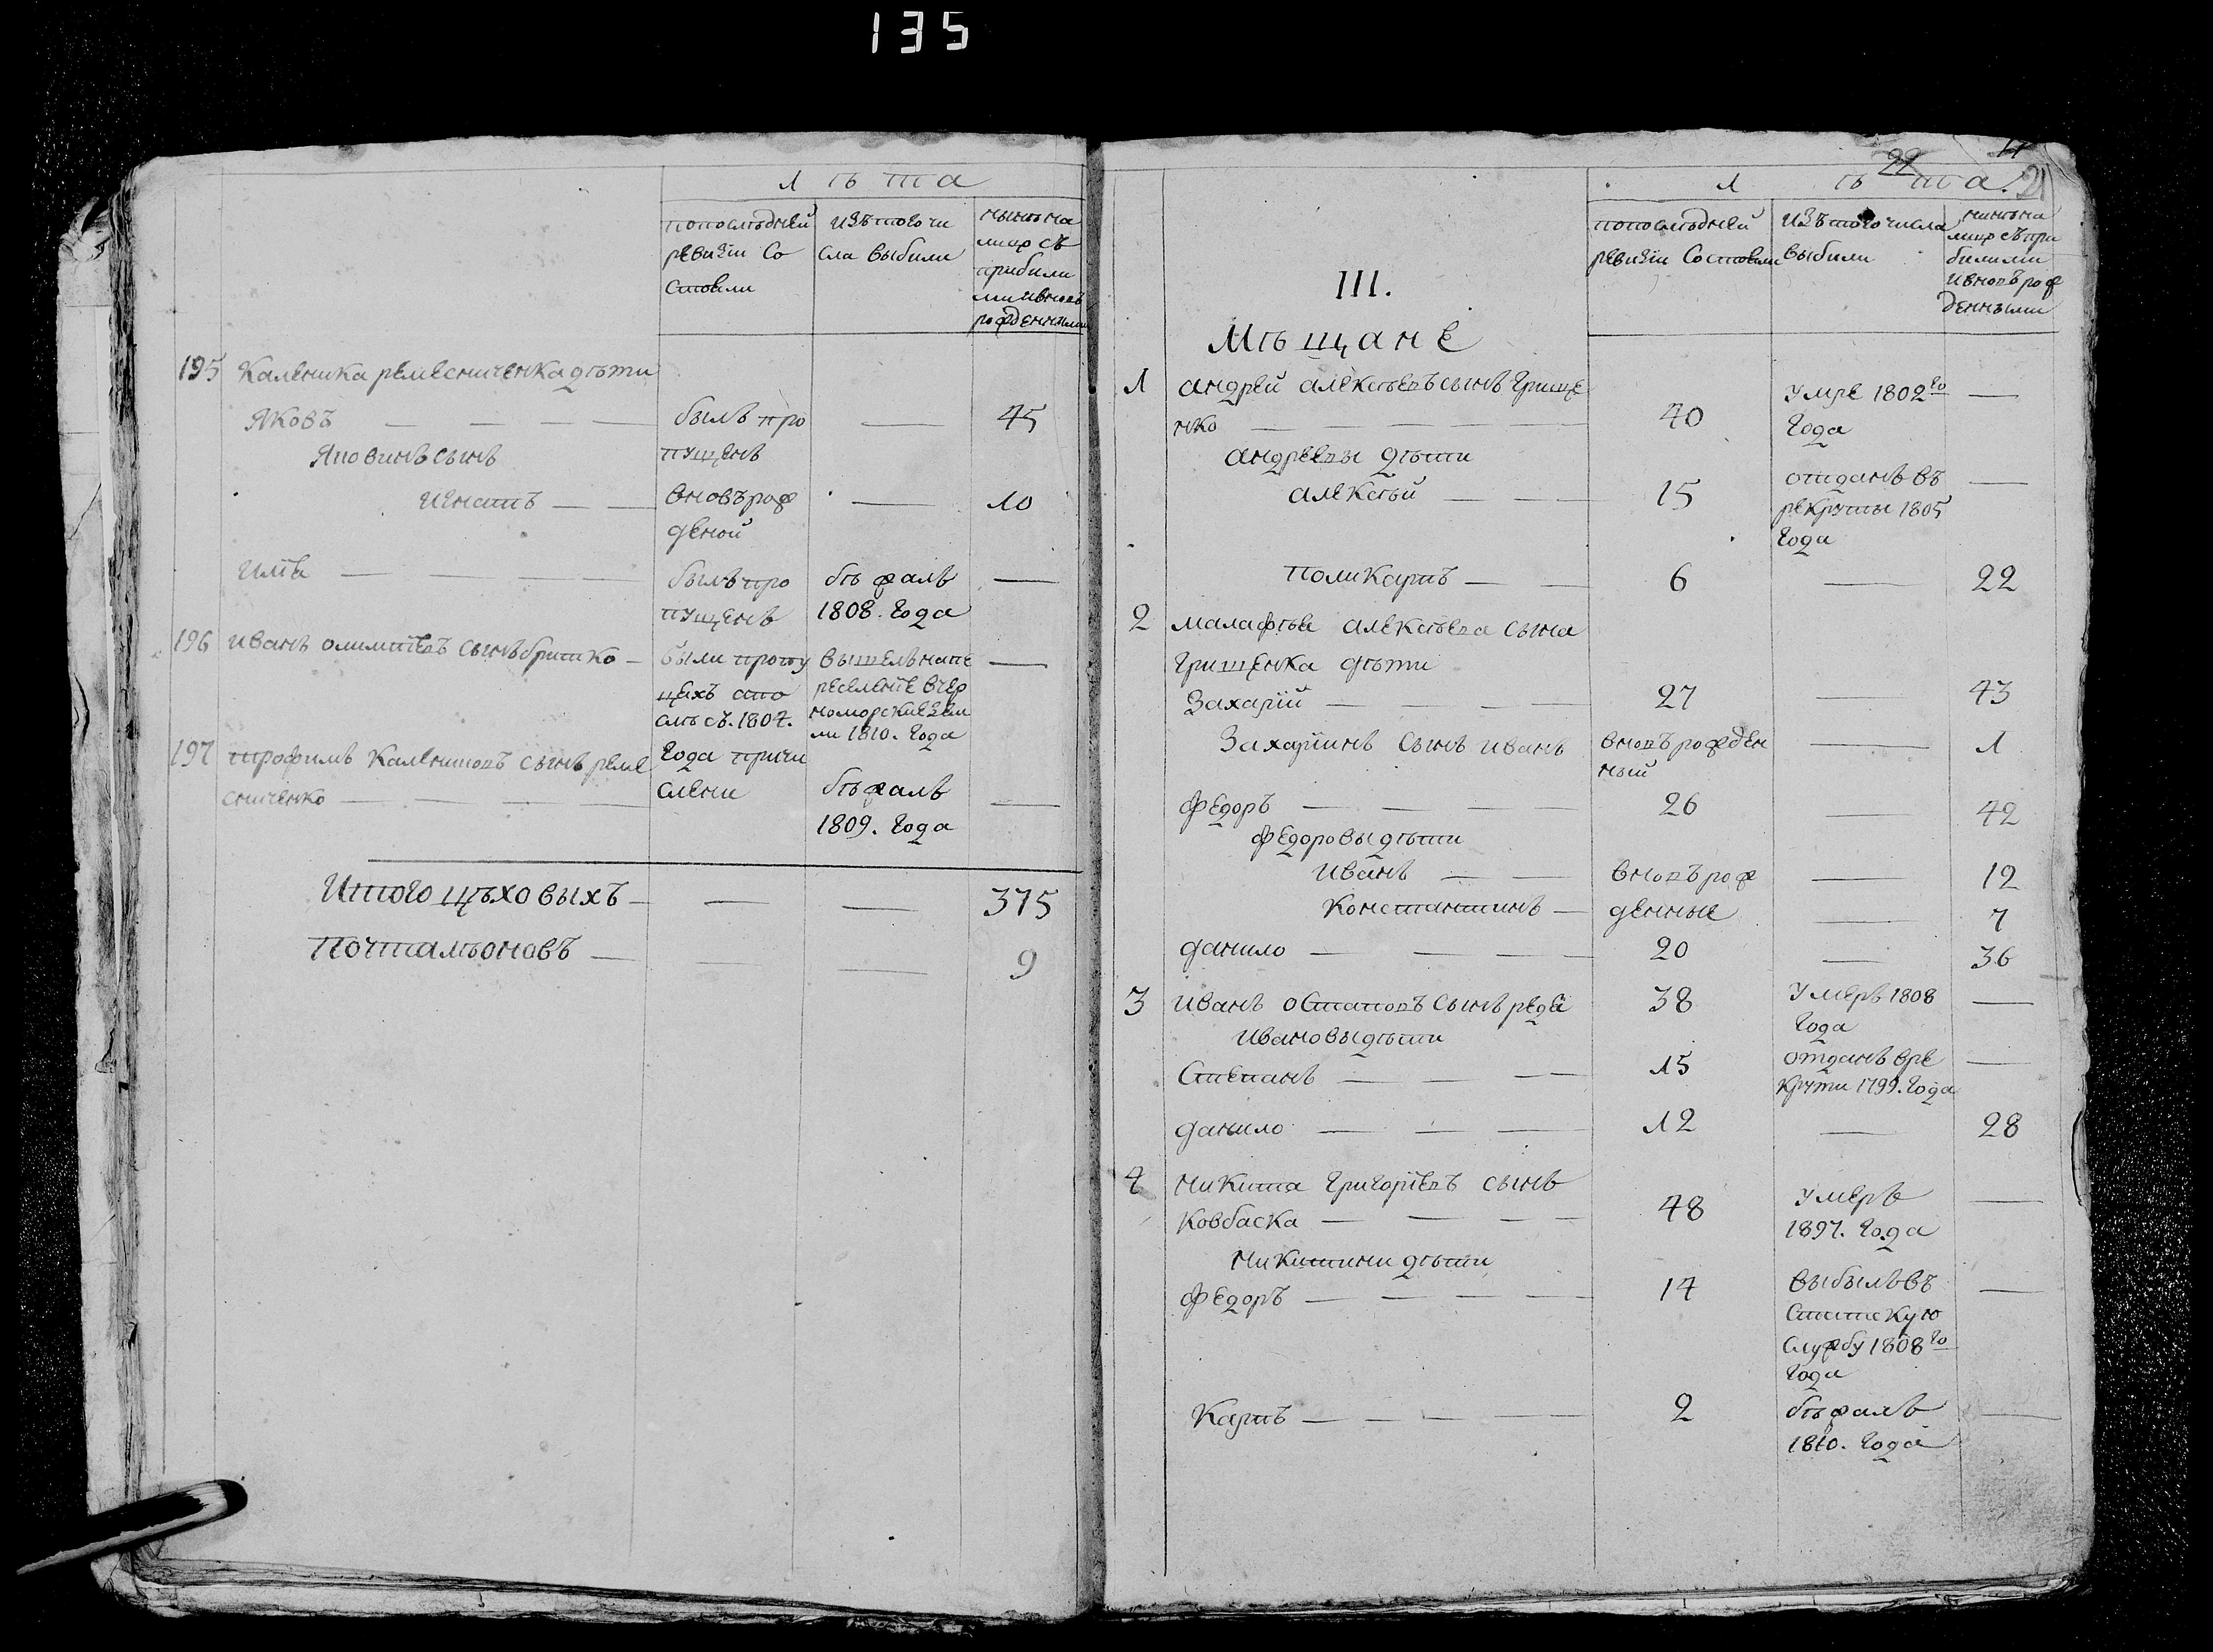 135
Лѣта
попослѣдней
ревизіи со
стояли
изътого чи
сла выбыли
нынѣ на
лицо съ
прибылы
ми ивновь
рожденными
195 Каленика ремесниченка дѣти
Яковъ — — — — былъ про — 45
пущенъ
Яковинъ сынъ
Игнатъ — — вновърож — 10
деной
Илія — — — — былъ про бѣжалъ —
пущенъ 1808. года
196 Иванъ олимпіевъ сынъ бритко — были пропу вышелъ напе —
щенъ апо реселеніе вчер
слѣ съ. 1807. номорскіе зем
ли 1810. года
197 трофимъ Калениковъ сынъ реме года причи
сниченко — — — — слени бѣжалъ —
1809. года
Итого цѣховыхъ — — — 375
Почталіоновъ — — — 9
22
21
Лѣта.
попослѣдней
ревизіи состояли
изътого числа
выбыли
нинѣ на
лицо съпри
билими
ивновърож
денными
III.
Мѣщане
1 андрей алексѣевъ сынъ Грище
нко — — — — 40 умре 1802го —
года
андреевы дѣти
алексѣй — — 15 отданъ въ —
рекруты 1805
года
поликарпъ — — 6 — 22
2 малафѣя алексѣева сына
Грищенка дѣти
Захарій — — — — 27 — 43
Захаріинъ сынъ иванъ вновърожден — 1
ный
Федоръ — — — — 26 — 42
Федоровы дѣти
иванъ — — вновърож — 12
Константинъ — денные — 7
данило — — — — 20 — 36
3 иванъ остаповъ сынъ редя 38 умеръ 1808 —
года
ивановы дѣти
Степанъ — — — — 15 отданъ вре —
крути 1799. года
данило — — — 12 — 28
4 никита Григоріевъ сынъ
Ковбаска — — — — 48 умеръ —
1897. года
никитини дѣти
Федоръ — — — — 17 выбылъ въ —
статскую
службу 1808го
года
Карпъ — — — — 2 бѣжалъ —
1810. года